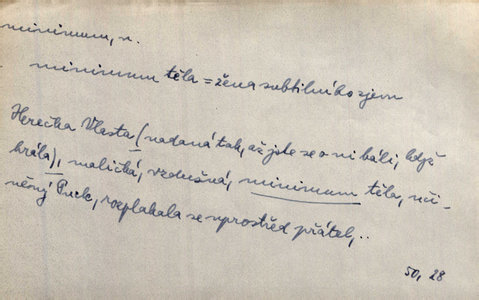 minimum, n.
minimum těla = žena subtilního zjevu
Herečka Vlasta (nadaná tak, až jste se o ni báli, když
hrála), malická, vzdušná, minimum těla, uči-
něný Puck, rozplakala se uprostřed přátel,..
50, 28